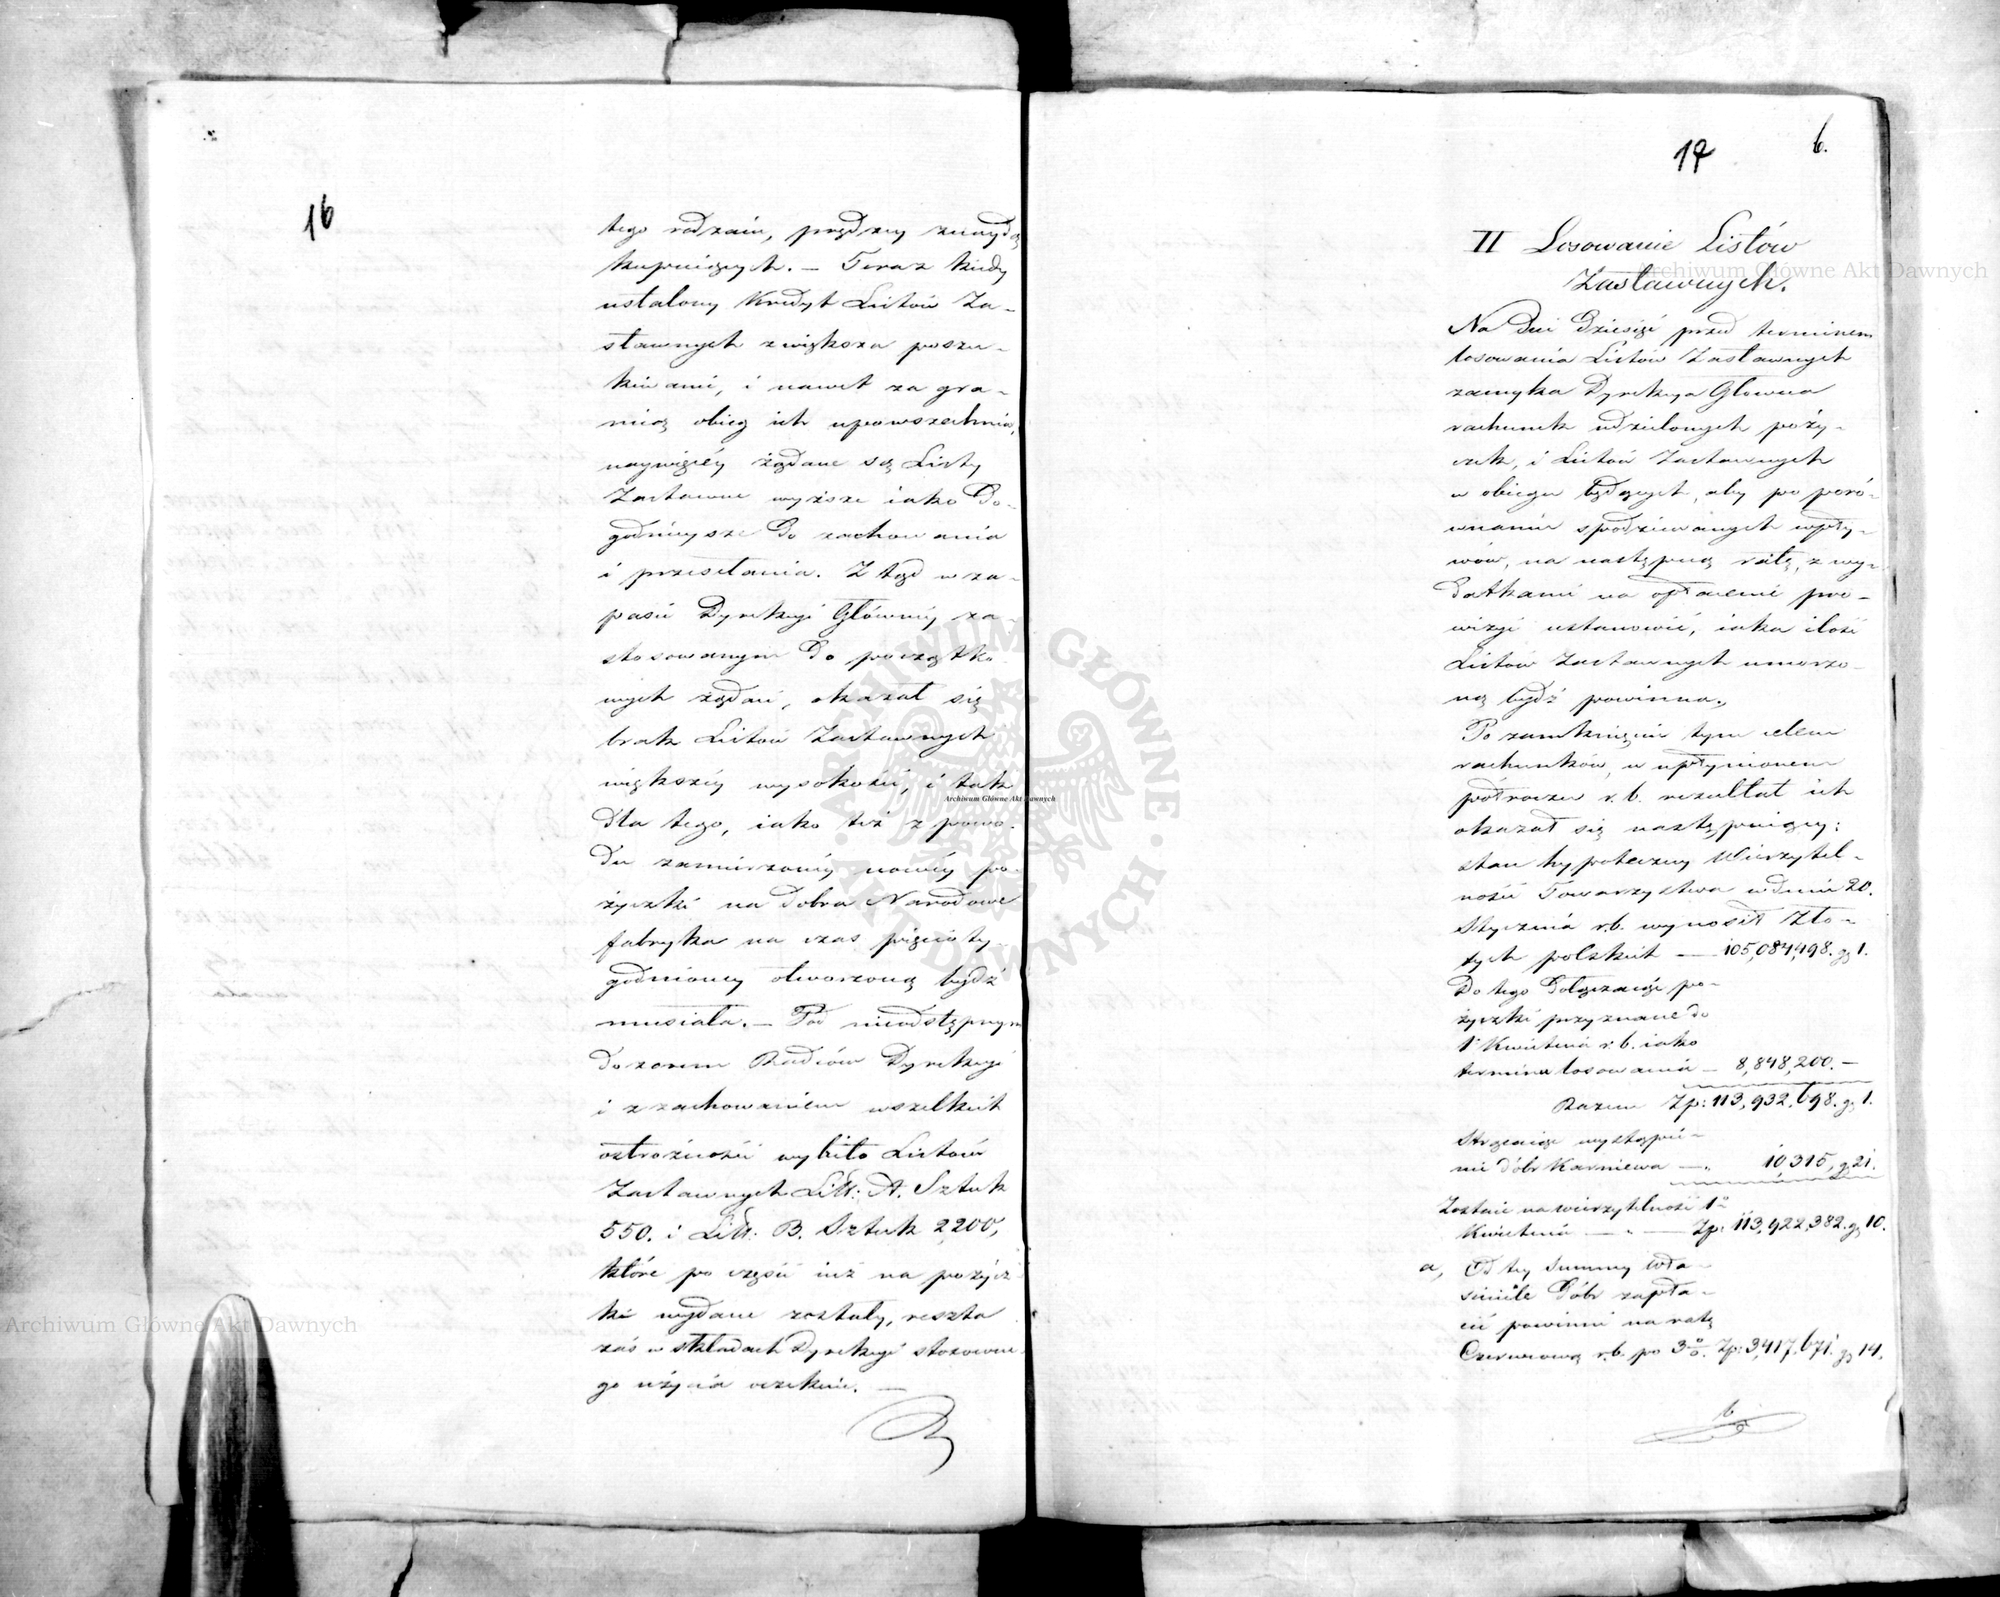 16
tego rodzaiu, prędzey znaydą
kupuiących. — Teraz kiedy
ustalony Kredyt Listów Za-
stawnych zwiększa poszu-
kiwanie, i nawet za gra-
nicą obieg ich upowszechnia,
naywięcéy żądane są Listy
Zastawne wyższe iako do-
godnieysze do zachowania
i przesełania. Ztąd w za-
pasie Dyrekcyi Głównéy za-
stosowanym do początko-
wych żądań, okazał się
brak Listów Zastawnych
większéy wysokości, i tak
dla tego, iako też z powo-
du zamierzonéy nowéy po-
życzki na Dobra Narodowe
fabryka na czas pięcioty-
godniowy otworzoną bydź
musiała. — Pod nieodstępnym
dozorem Radców Dyrekcyi
i z zachowaniem wszelkich
ostrożności wybito Listów
Zastawnych Litt: A. Sztuk
550. i Litt: B. Sztuk 2,200,
które po części iuż na pożycz-
ki wydane zostały, reszta
zaś w składach Dyrekcyi stosowne-
go użycia oczekuie. —
17 6.
II Losowanie Listów
Zastawnych.
Na dni dziesięć przed terminem
losowania Listów Zastawnych
zamyka Dyrekcya Główna
rachunek udzielonych poży-
czek, i Listów Zastawnych
w obiegu będących, aby po poró-
wnaniu spodziewanych wpły-
wów, na następną ratę, z wy-
datkami na opłacenie pro-
wizyi ustanowić, iaka ilość
Listów Zastawnych umorzo-
ną bydź powinna.
Po zamknięciu tym celem
rachunków, w upłynionem
półroczu r. b. rezultat ich
okazał się następuiący:
stan hypoteczny Wierzytel-
ności Towarzystwa w dniu 20.
Stycznia r.b. wynosił Zło-
tych polskich — 105,084,498. g 1.
Do tego dołączaiąc po-
życzki przyznane do
1 Kwietnia r. b. iako
terminu losowania — 8,848,200. —
Razem Zp: 113,932,698. g 1.
Strącaiąc wystąpie-
nie dóbr Karniewa — „ 10,315, g 21.
Zostaie na wierzytelność 1o
Kwietnia — „ — Zp: 113,922,382. g 10.
a, Od tey Summy wła-
ściciele Dóbr zapła-
cić powinni na ratę
Czerwcową r.b. po 3 %. Zp: 3,417,671. g 14.
Archiwum Główne Akt Dawnych
Archiwum Główne Akt Dawnych
Archiwum Główne Akt Dawnych
ARCHIWUM GŁÓWNE · AKT DAWNYCH ·